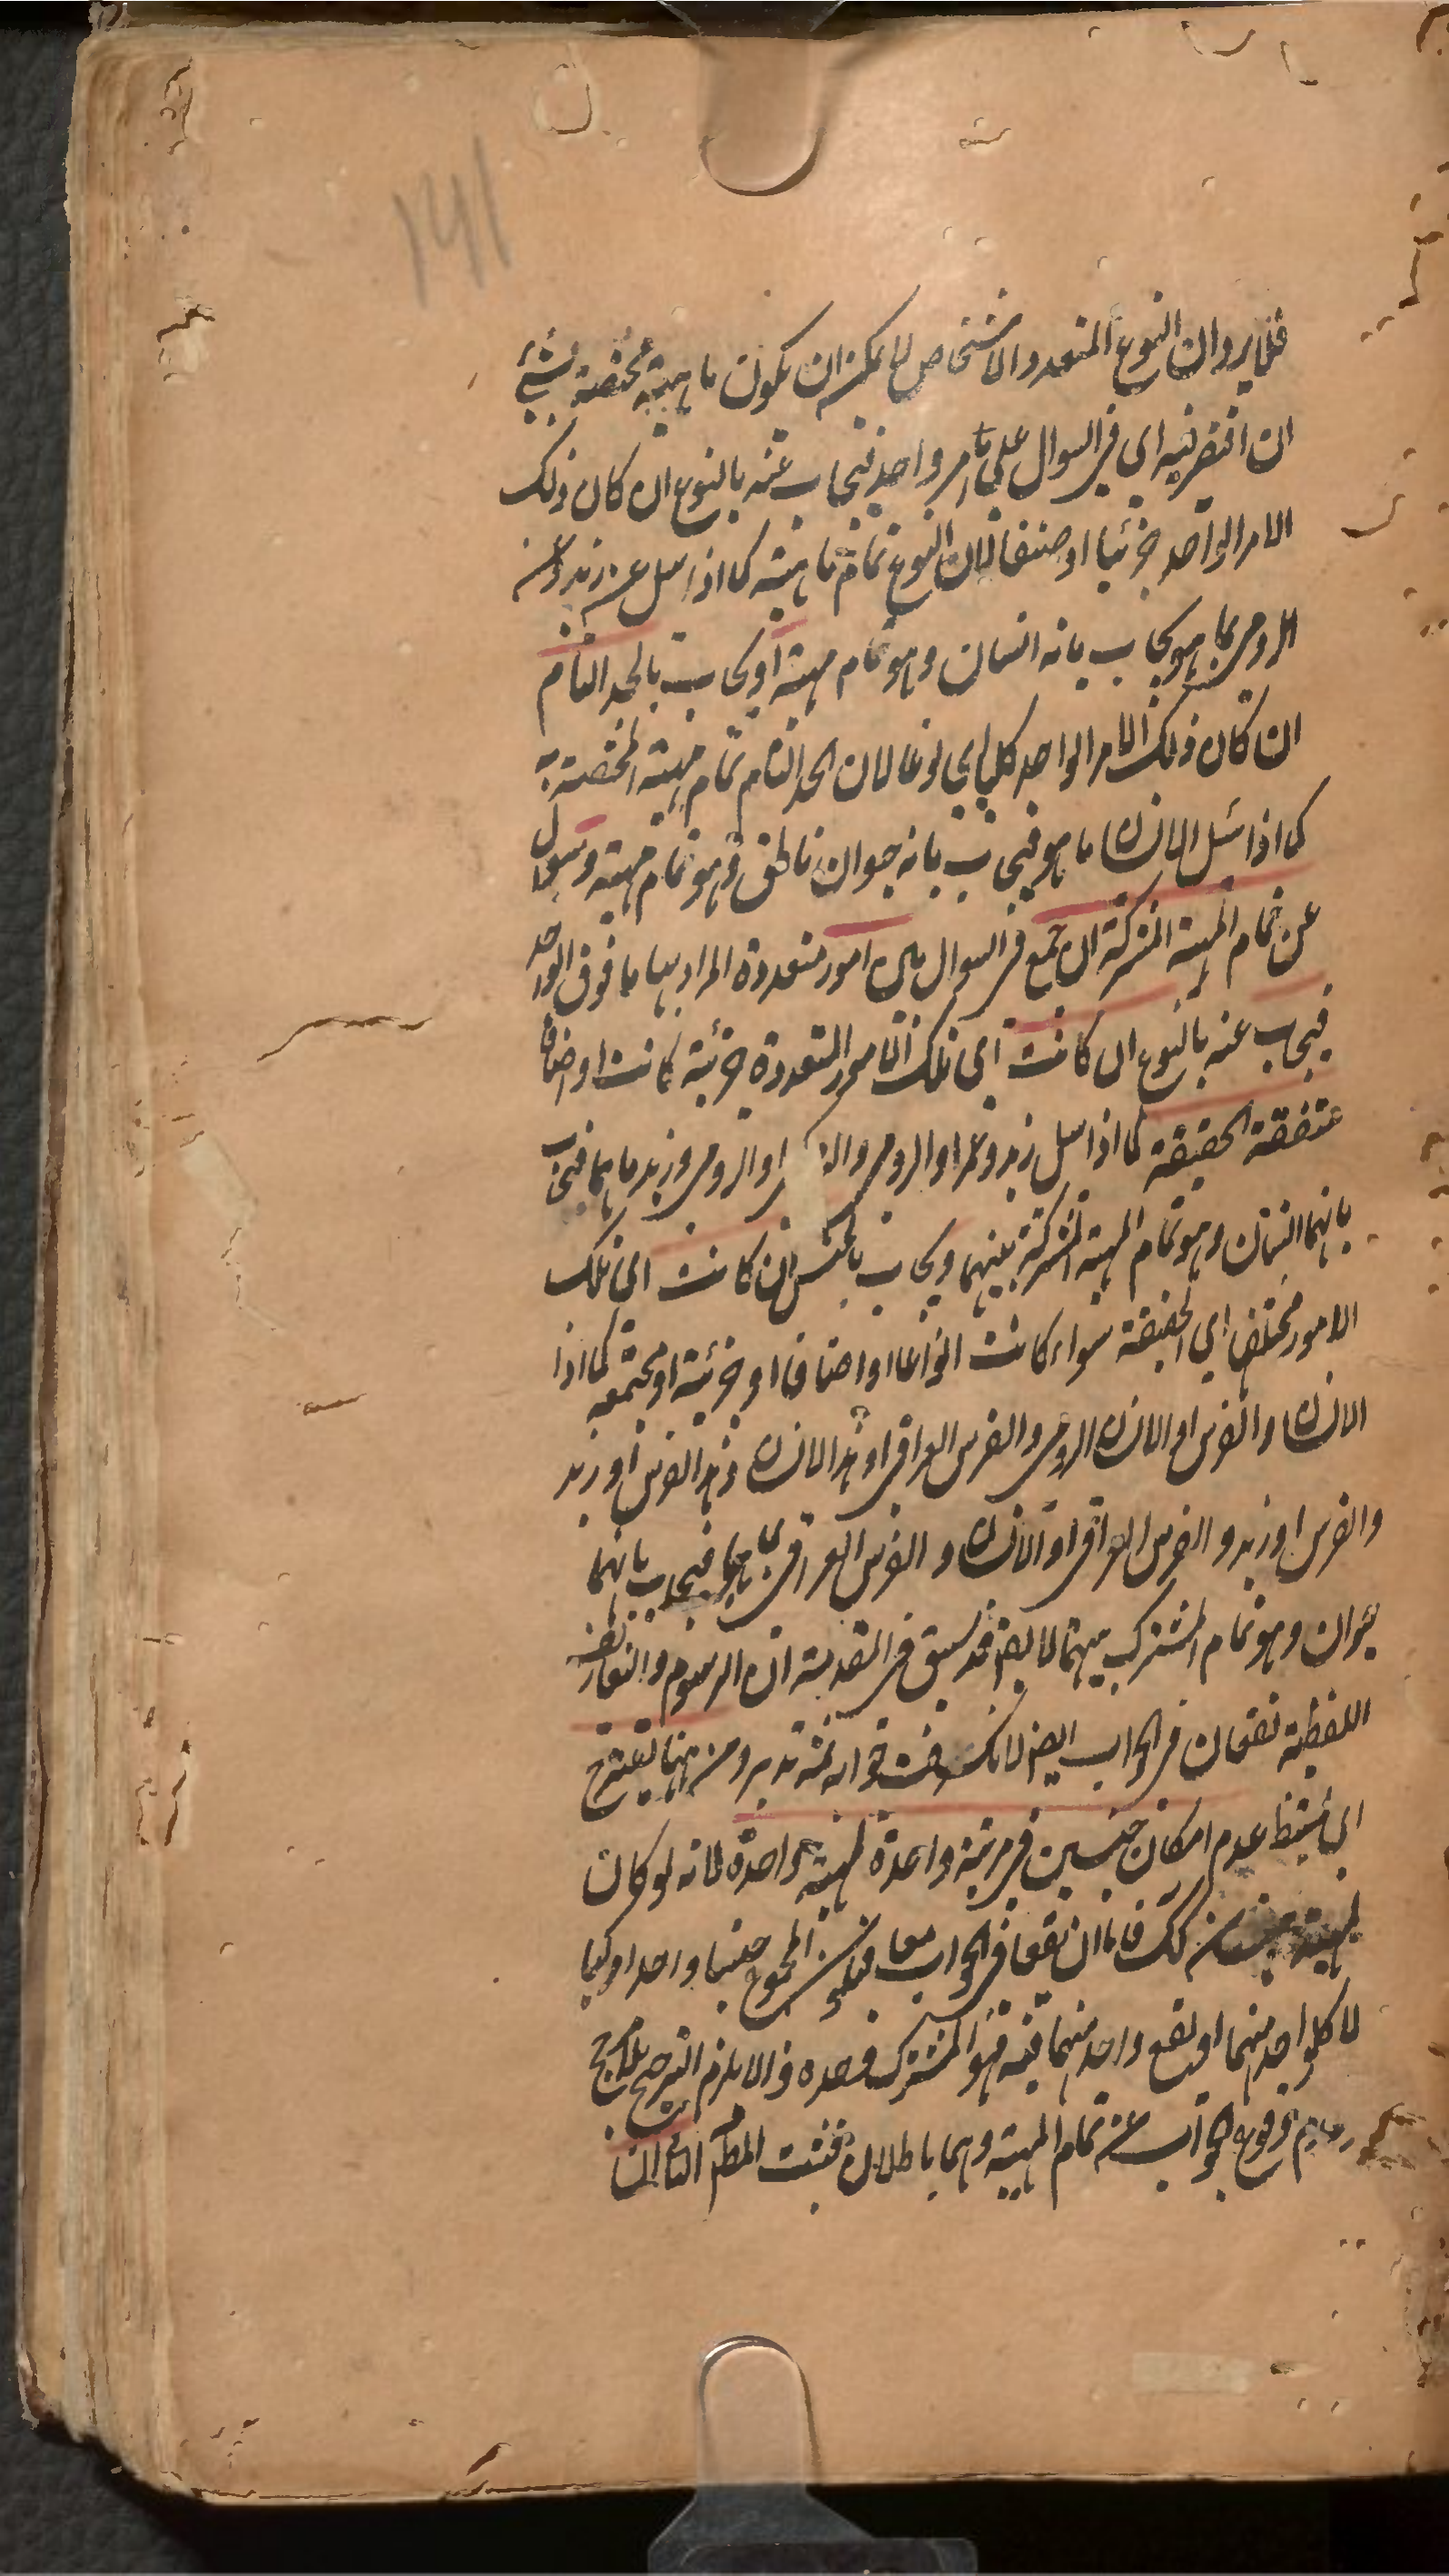 ١٧١
فلا يرد ان النوع المتعدد الاشخاص لا يمكن ان يكون ماهيته مختصة بشئ
ان اقتصر فيه اي في السوال على امر واحد فيجاب عنه بالنوع ان كان ذلك
الامر الواحد جزئيا او صنفا لان النوع تمام ماهيته كما اذا سل عن زيد وعن
الرومي بما هو يجاب بانه انسان وهو تمام مهيته او يجاب بالحد التام
ان كان ذلك الامر الواحد كليا اي نوعا لان الحد التام تمام مهيته المختصة به
كما اذا سئل الانسان ما هو فيجاب بانه حيوان ناطق وهو تمام مهيته وسوال
عن تمام المهية المشتركة ان جمع في السوال بين امور متعددة المراد بها ما فوق الواحد
فيجاب عنه بالنوع ان كانت اي تلك الامور المتعددة جزئية كانت او اصنافا
متفقة الحقيقة كما اذا سل زيد وعمرو او الرومي و او الرومي وزيد ما هما فيجاب
بانهما انسان وهو تمام المهية المشتركة بينهما ويجاب بالجنس ان كانت اي تلك
الامور مختلفة اي الحقيقة سواء كانت انواعا او اصنافا او جزئية او مجتمعة كما اذا
الانسان والفرس او الانسان الرومي والفرس العراقي او هذا الانسان وهذا الفرس او زيد
والفرس او زيد والفرس العراقي او الانسان والفرس العراقي بما هما فيجاب بانهما
حيوان وهو تمام المشترك بينهما لا يقال قد سبق في المقدمة ان الرسوم والتعاريف
اللفظية تقعان في الجواب ايضا لانك عرفت جوابه ثمة تدبر ومن ههنا يقترح
اي يستنبط عدم امكان جنسين في مرتبة واحدة لمهية واحدة لانه لو كان
لمهية جنسان كك فاما ان يقعا في الجواب معا فيكون المجموع جنسا واحدا مركبا
لا كل واحد منهما او يقع واحد منهما فيه فهو المشترك وحده والا يلزم الترجيح بلا مرجح
وعدم وقوع الجواب عن تمام المهية وهما باطلان فثبت المطم الثالث